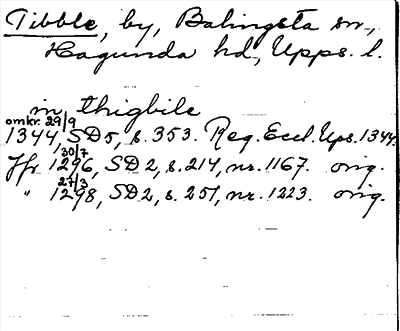 Tibble, by, Balingsta sn.,
Hagunda hd, Upps. l.
in thigbile
omkr. 29/9
1344, SD5, s. 353. Reg. Eccl. Ups. 1344.
30/7
Jfr 1296, SD2, s. 214, nr. 1167. orig.
27/3
" 1298, SD2, s. 251, nr. 1223. orig.